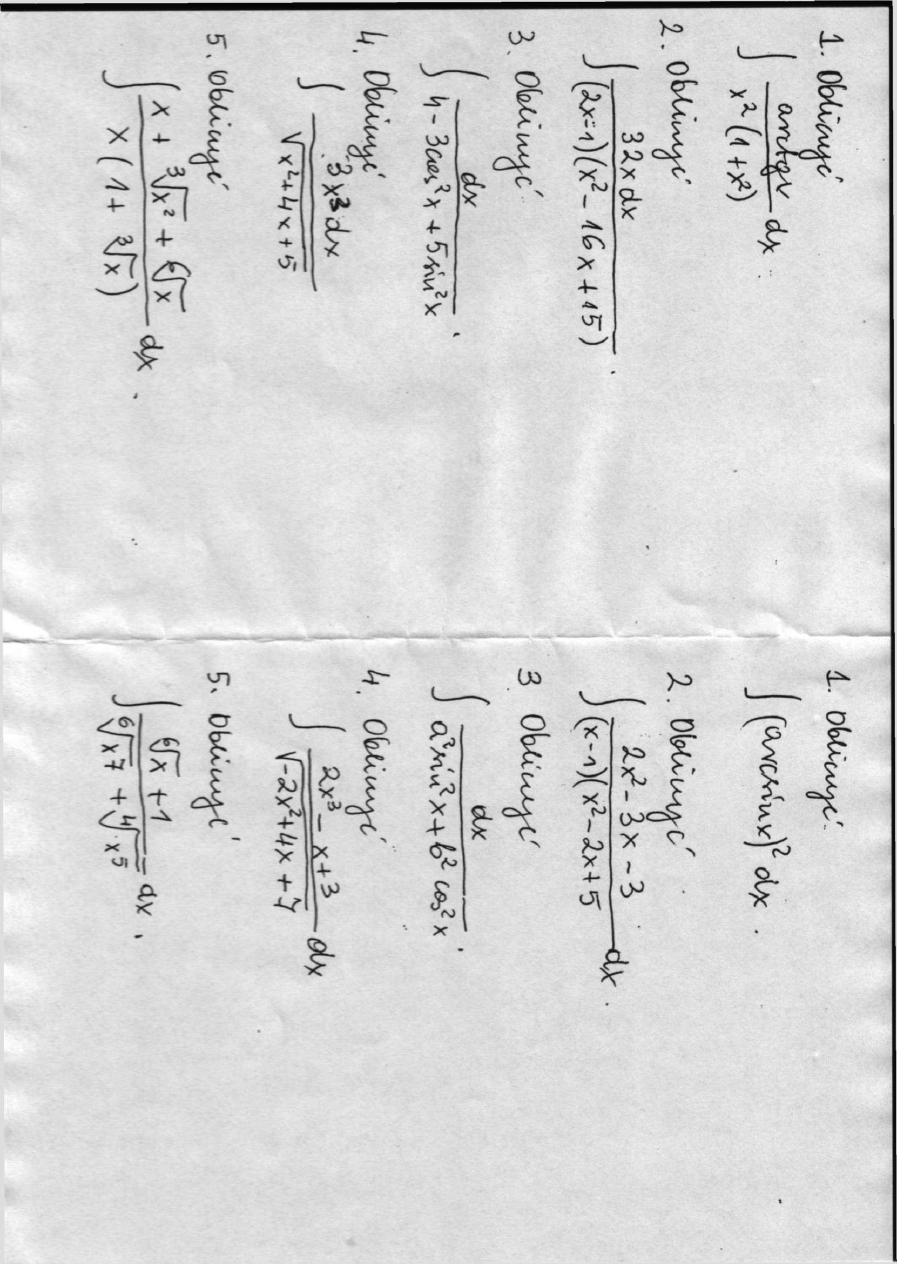 1. Obliczyć
∫ arctgx / x²(1+x²) dx
2. Obliczyć
∫ 32x dx / (2x-1)(x²-16x+15) .
3. Obliczyć
∫ dx / 4-3cos²x+5sin²x .
4. Obliczyć
∫ 3x³ dx / √x²+4x+5
5. Obliczyć
∫ x + ∛x² + ⁶√x / x(1+ ∛x) dx .
1. Obliczyć.
∫ (arcsinx)² dx .
2. Obliczyć
∫ 2x²-3x-3 / (x-1)(x²-2x+5 dx .
3 Obliczyć
∫ dx / a²sin²x+b²cos²x .
4. Obliczyć
∫ 2x³-x+3 / √-2x²+4x+7 dx
5. Obliczyć
∫ ⁶√x +1 / ⁶√x7 + ⁴√x5 dx .